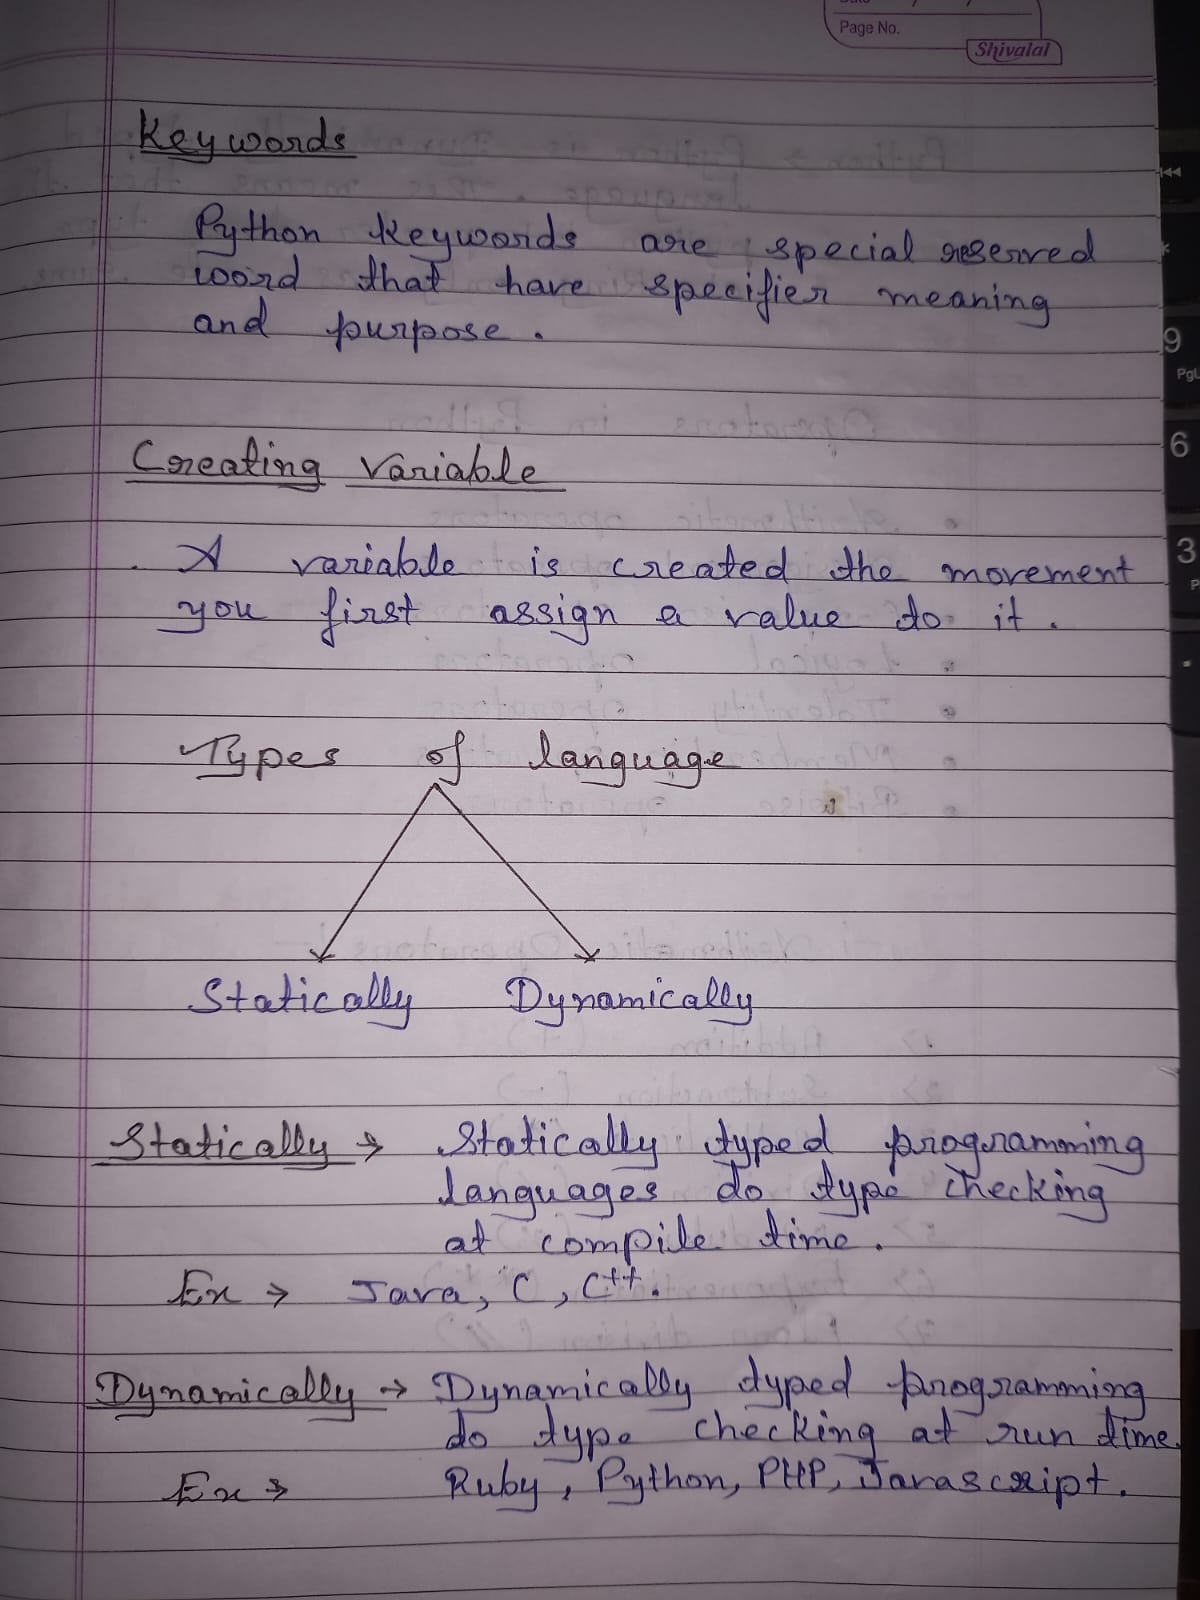 Page No.
Shivalal
Keywords
Python Keywords are special reserved
word that have specifier meaning
and purpose.
Creating variable
A variable is created the movement
you first assign a value do it.
Types of language
Statically Dynamically
Statically → Statically typed programming
languages do type checking
at compile time.
Ex → Java, C, C++.
Dynamically → Dynamically typed programming
do type checking at run time.
Ex → Ruby, Python, PHP, Javascript.
9
PgU
6
3